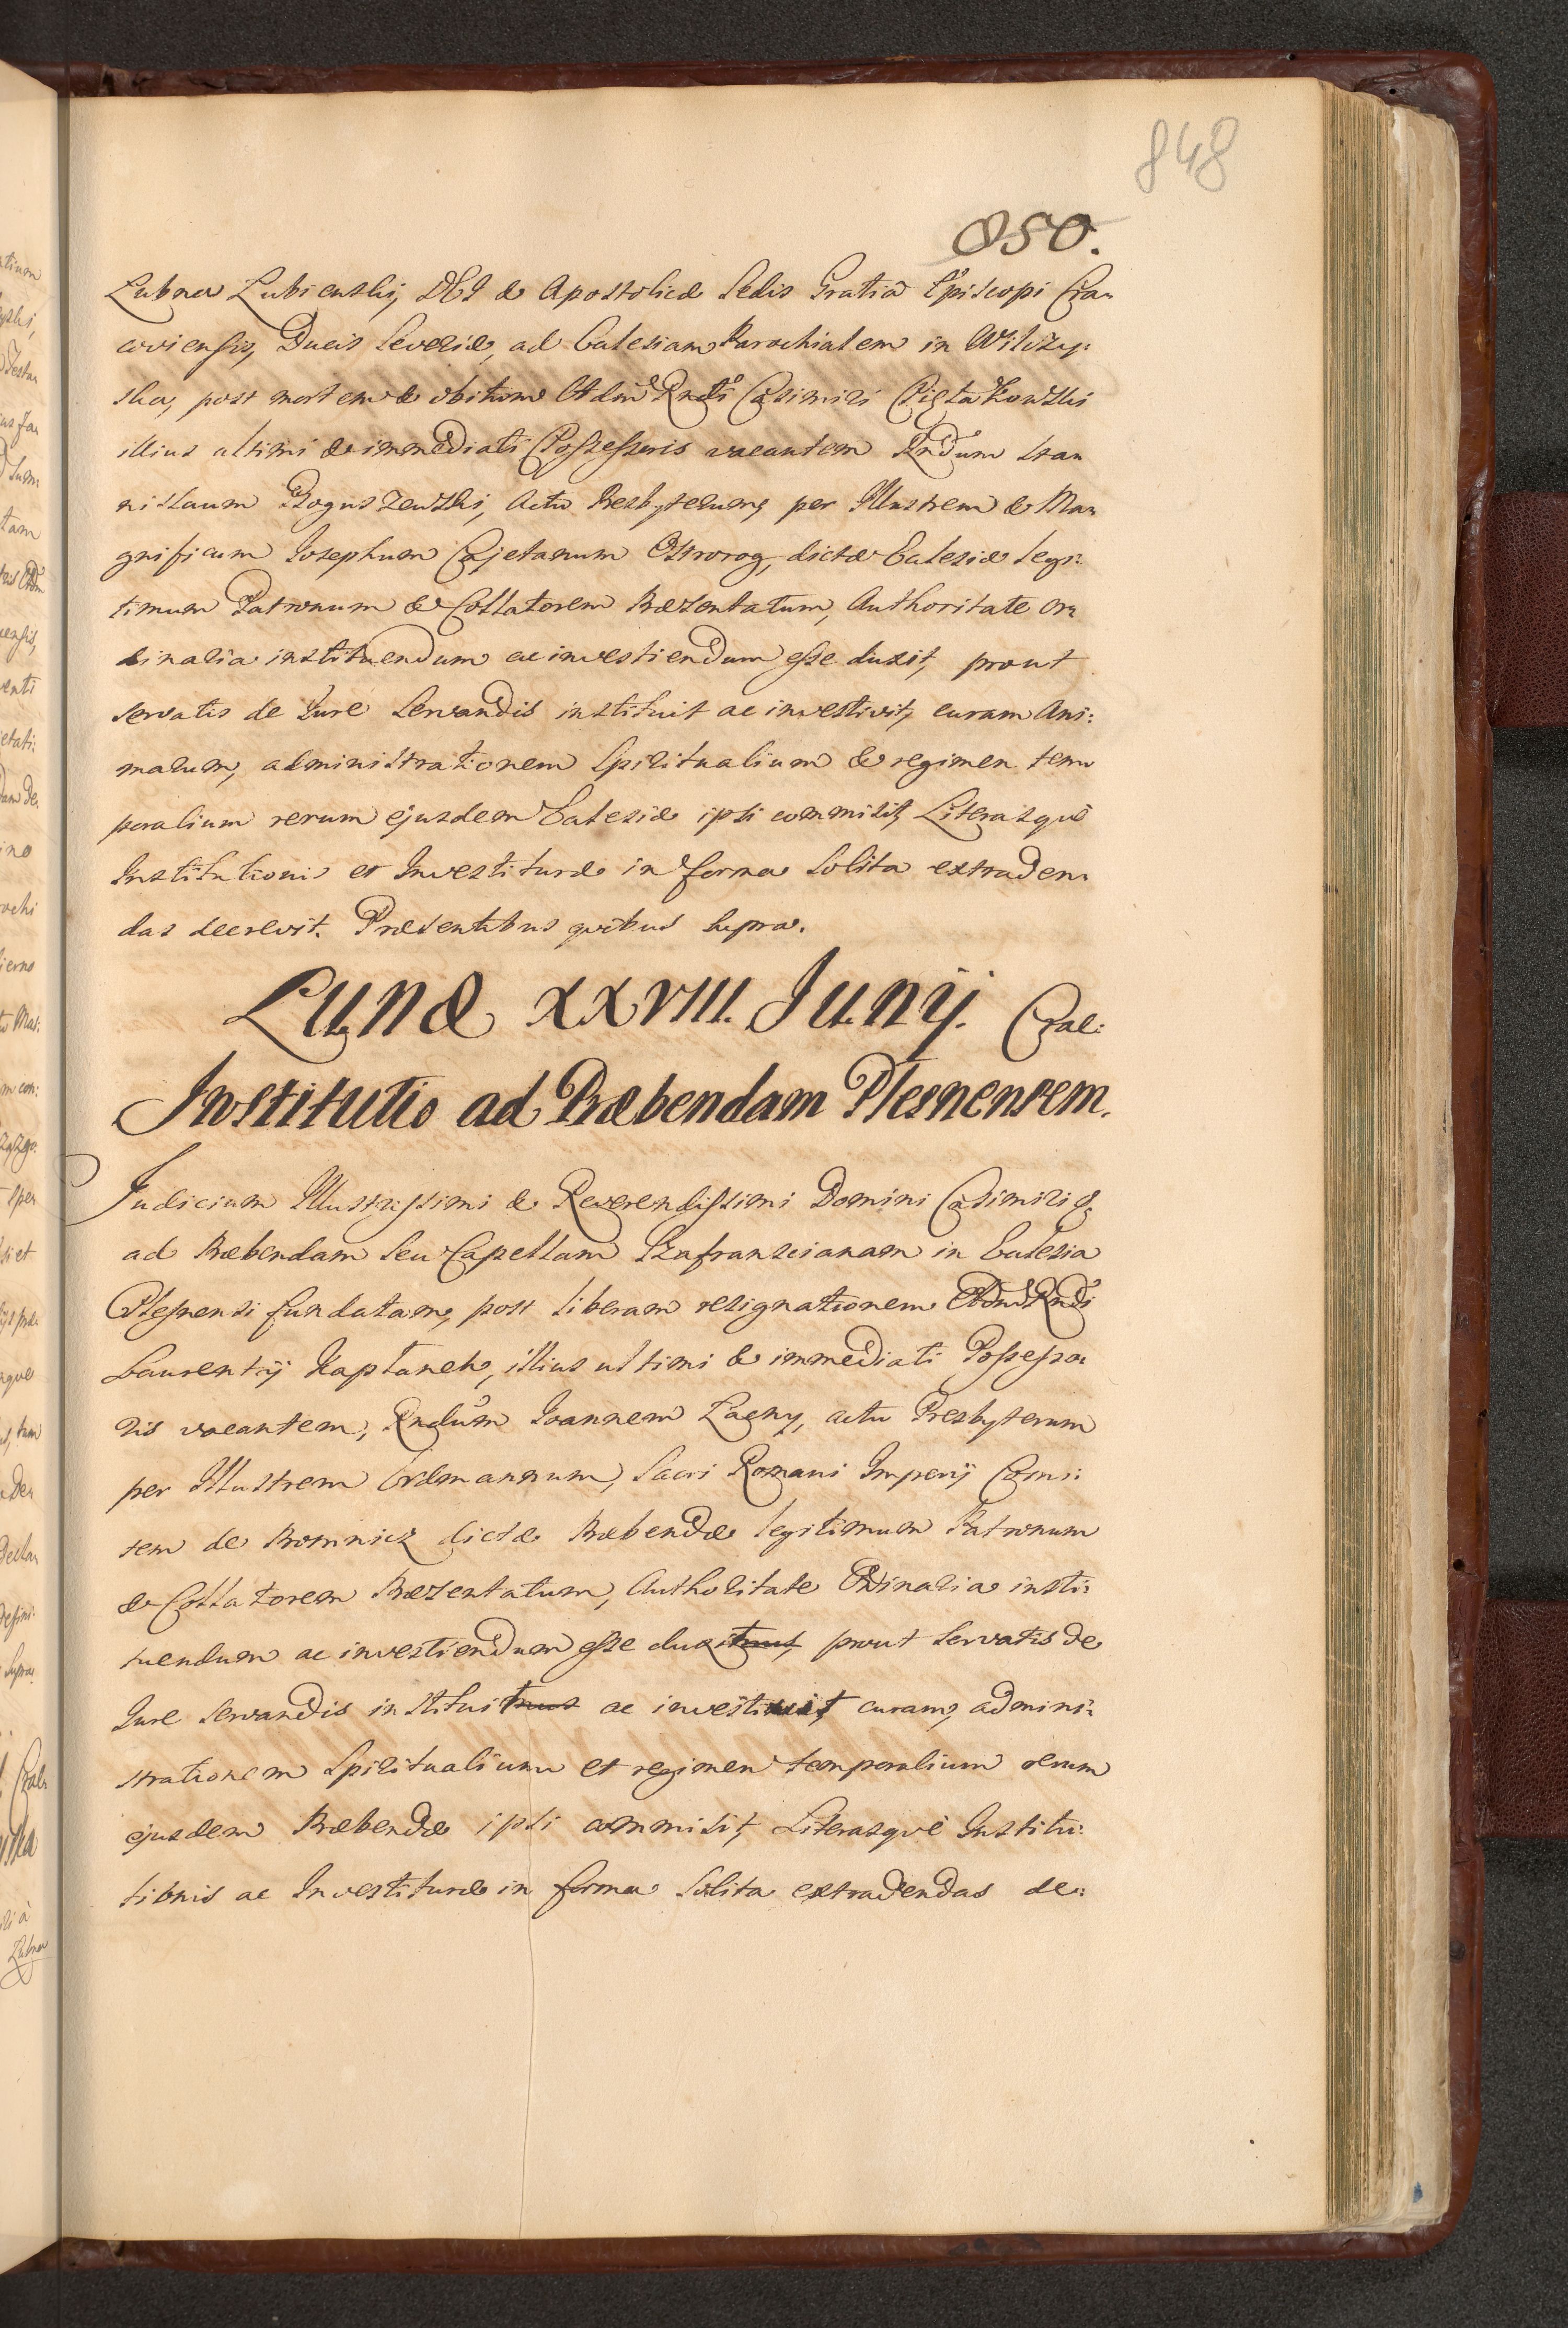 848
850.
Łubna Łubienski, DEI & Apostolicæ Sedis Gratia Episcopi Cra-
coviensis, Ducis Severiæ, ad Ecclesiam Parochialem in Wilczy:
ska, post mortem & obitum Adm Rndi Casimiri Piętakowski
illius ultimi & immediati Possessoris vacantem Rndum Sta-
nislaum Boguszewski, Actu Presbyterum, per Illustrem & Ma-
gnificum Josephum Cajetanum Ostrorog, dictæ Ecclesiæ legi:
timum Patronum & Collatorem Præsentatum, Authoritate or-
dinaria instituendum ac investiendum esse duxit, prout
servatis de Jure Servandis instituit ac investivit, curam Ani:
marum, administrationem Spiritualium & regimen tem-
poralium rerum ejusdem Ecclesiæ ipsi commisit, Literasque
Institutionis et Investituræ in forma Solita extraden-
das decrevit. Præsentibus quibus supra.
Lunæ XXVIII. Junij. Crac:
Institutio ad Præbendam Plesnensem.
Judicium Illustrissimi & Reverendissimi Domini Casimiri &
ad Præbendam Seu Capellam Szafranscianam in Ecclesia
Plesnensi fundatam, post liberam resignationem Adm Rndi
Laurentij Kaptanek, illius ultimi & immediati Possesso-
ris vacantem, Rndum Joannem Lagny, actu Presbyterum
per Illustrem Erdmannum, Sacri Romani Imperij Comi:
tem de Promnicz dictæ Præbendæ legitimum Patronum
& Collatorem Præsentatum, Authoritate Ordinaria insti:
tuendum ac investiendum esse duxit, prout Servatis de
Jure servandis instituit ac investivit, curam, admini:
strationem Spiritualium et regimen temporalium rerum
ejusdem Præbendæ ipsi commisit, Literasque Institu:
tionis ac Investituræ in forma Solita extradendas de: